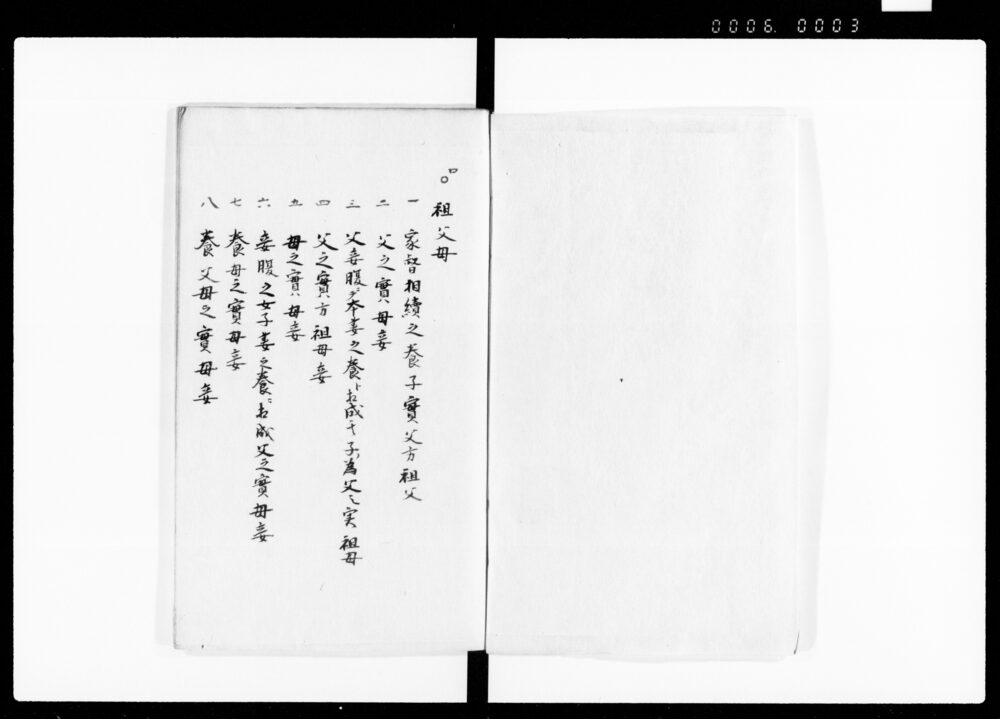 0006. 0003
祖父母
一 家督相續之養子實父方祖父
二 父之實母妾
三 父妾腹ニ而本妻之養ト相成候子ハ為父之実祖母
四 父之實方祖母妾
五 母之實母妾
六 妾腹之女子妻之養ニ相成父之實母妾
七 養母之實母妾
八 養父母之實母妾